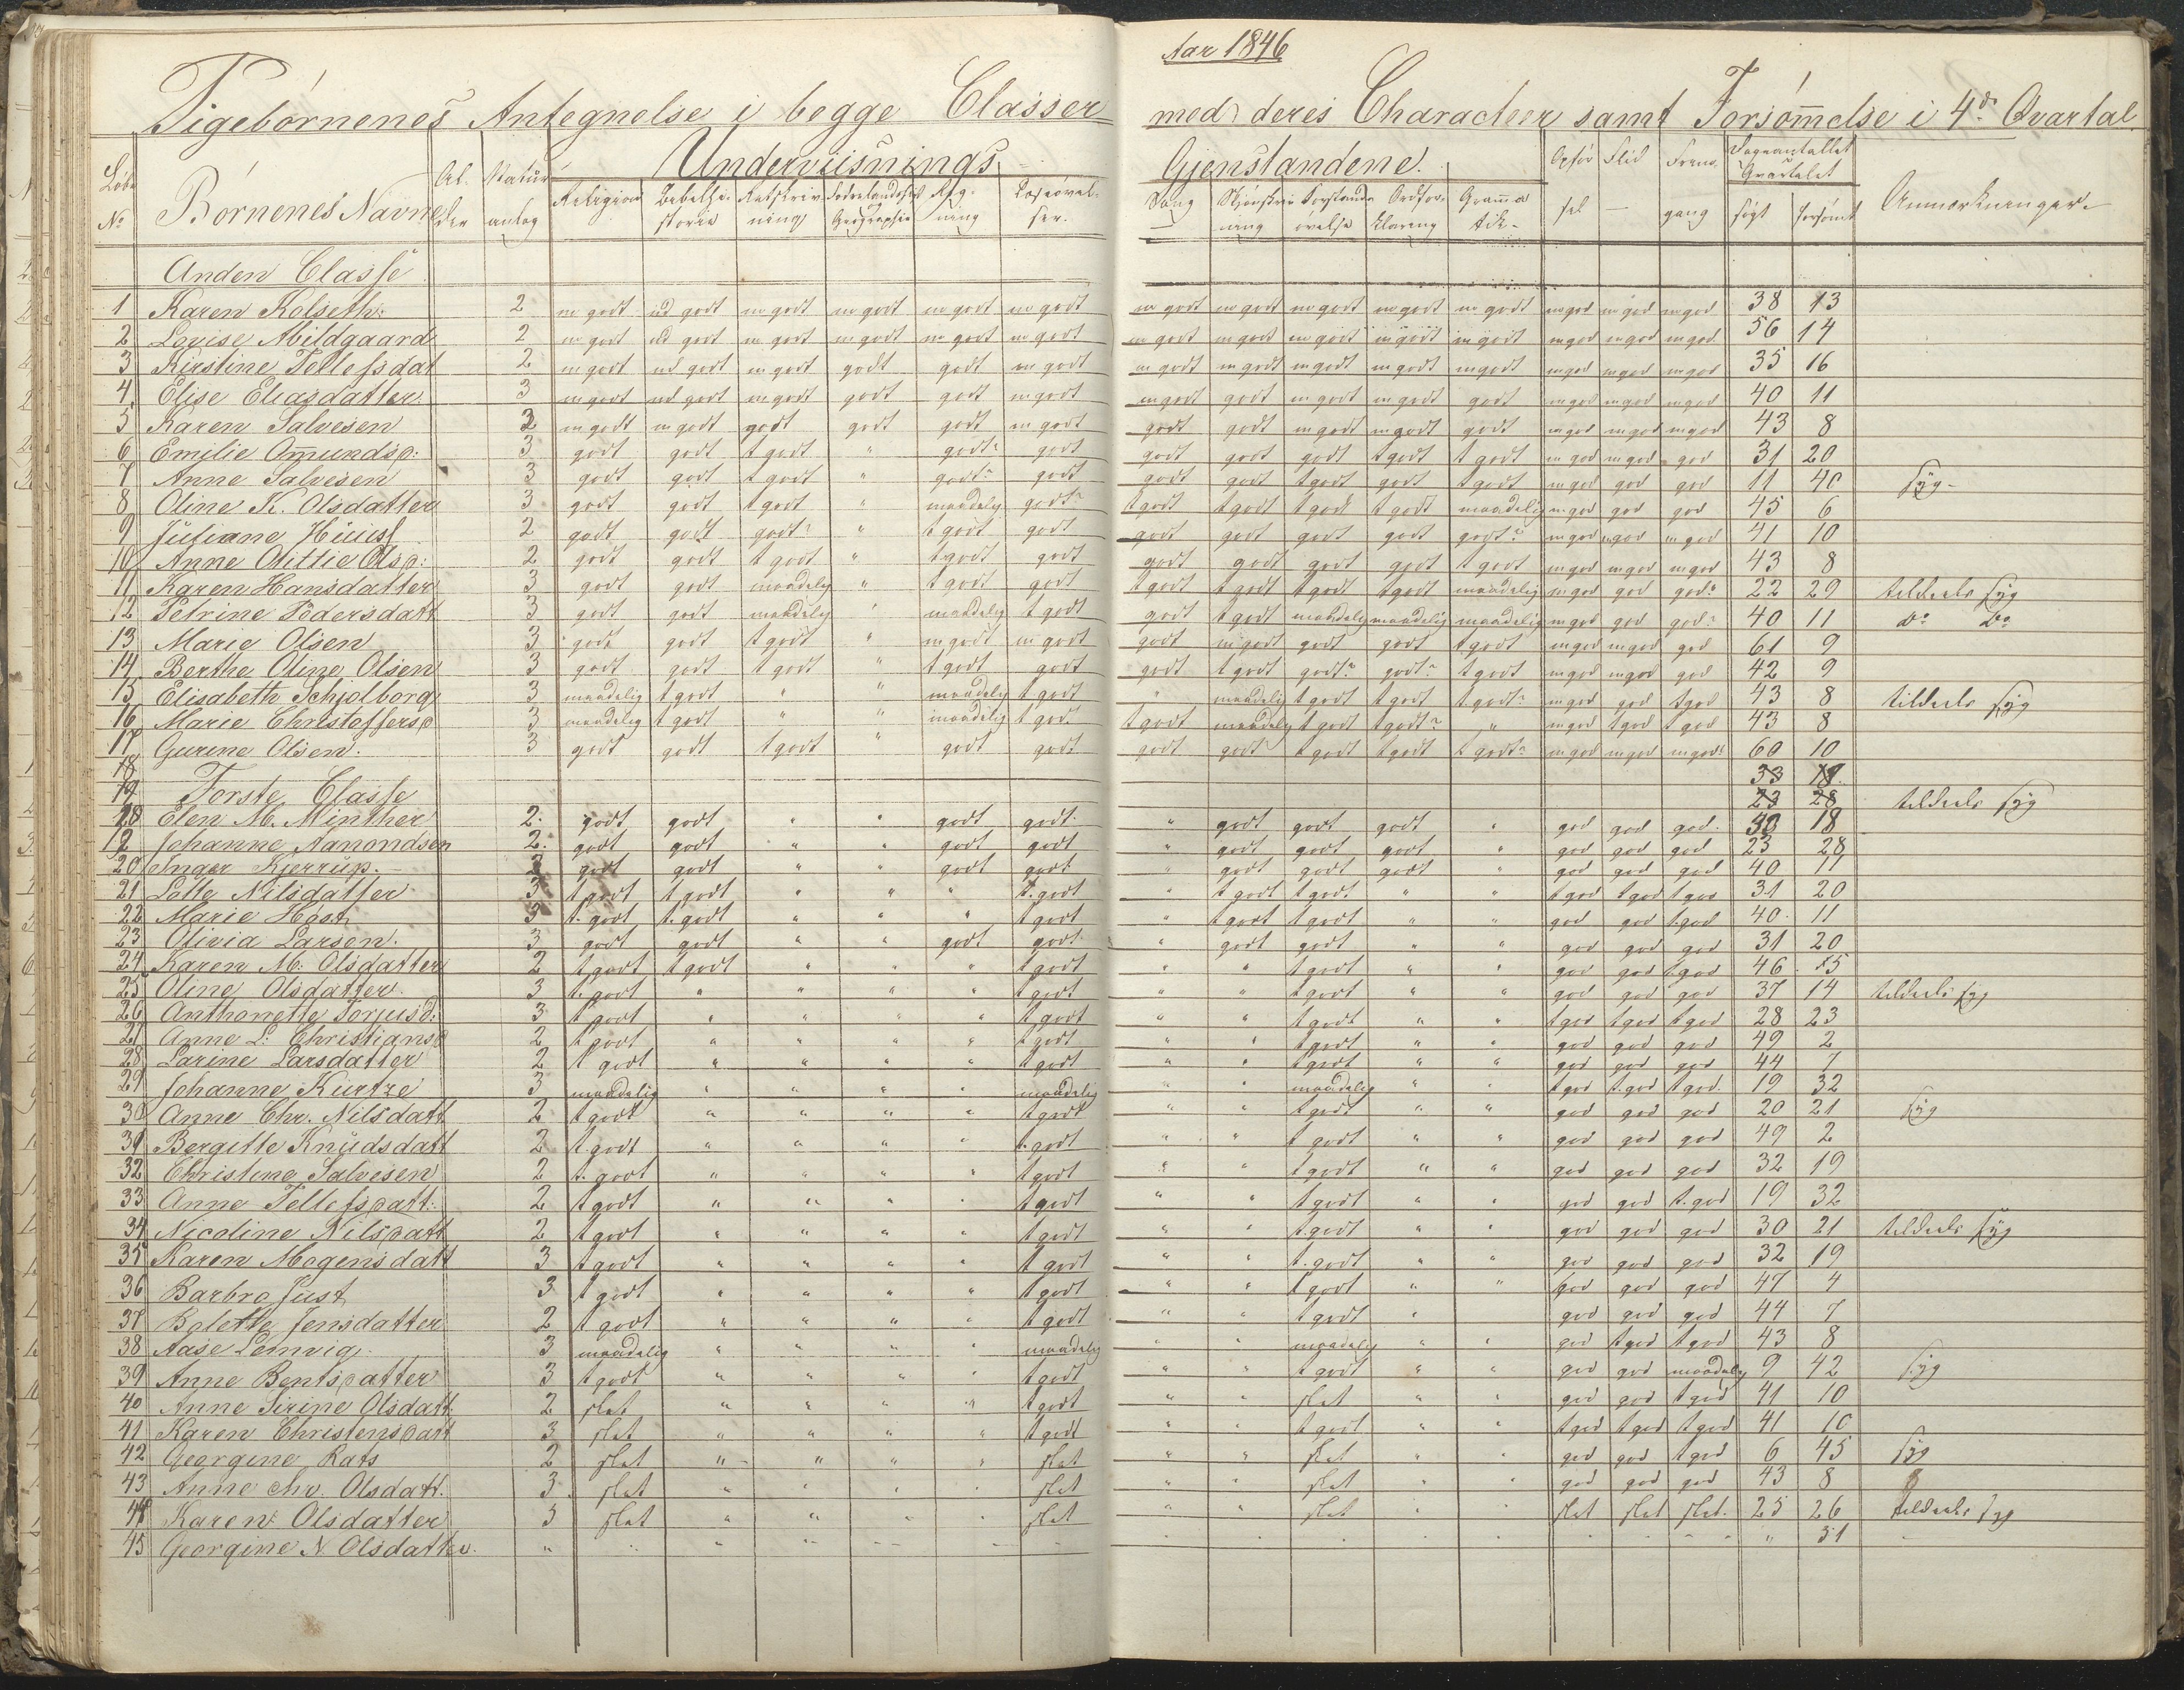 Aar 1846
Pigebørnenes Antegnelse i begge Classer med deres Characteer samt Forsømmelse i 4de Qvartal
Løbe No Børnenes Navne Al-der Naturanlæg Underviisnings Gjenstandene. Opførsel Flid Fremgang Dageantallet i Qvartalet Anmærkninger
Religion Bibelhistorie Retskrivning Fædrelandshist Geographie Regning Læseøvelser Sang Skjønskrivning Forstandsøvelse Ordforklaring Grammatik søgt forsømt
Anden Classe
1 Karen Kolseth 2 m godt ud godt m godt m godt m godt m godt m godt m godt m godt m godt m godt m god m god m god 38 13
2 Lovise Mildgaard 2 m godt ud godt m godt m godt m godt m godt m godt m godt m godt m godt m godt m god m god m god 56 14
3 Kirstine Tellefsdat 2 m godt ud godt m godt godt godt m godt m godt m godt m godt m godt m godt m god m god m god 35 16
4 Elise Eliasdatter 3 m godt ud godt m godt godt godt m godt m godt godt m godt m godt godt m god m god m god 40 11
5 Karen Salvesen 2 m godt m godt godt godt godt m godt godt godt m godt m godt godt m god m god m god 43 8
6 Emilie Omundsd: 3 godt godt t godt " godt? godt godt godt godt t godt t godt m god m god god 31 20
7 Anne Salvesen 3 godt godt t godt " godt? godt godt godt t godt godt t godt m god god god 11 40 syg
8 Oline K. Olsdatter 3 godt godt t godt " maadelig godt? t godt t godt t godt t godt maadelig m god god god 45 6
9 Juliane 2 godt godt godt? " t godt godt godt godt godt godt godt? m god m god m god 41 10
10 Anne Olsd: 2 godt godt t godt " t godt godt godt godt godt godt t godt m god m god m god 43 8
11 Karen Hansdatter 3 godt godt maadelig " t godt godt t godt t godt t godt t godt maadelig m god god god? 22 29 tildeels syg
12 Petrine Pedersdatt 3 godt godt maadelig " maadelig t godt godt t godt maadelig maadelig maadelig m god god god? 40 11 do do
13 Marie Olsen 3 godt godt t godt " m godt m godt godt m godt godt godt t godt m god m god god 61 9
14 Berthe Oline Olsen 3 godt godt t godt " t godt godt godt t godt godt? godt? t godt m god m god god 42 9
15 Elisabeth Schjolborg 3 maadelig t godt " " maadelig t godt " maadelig t godt t godt t godt? m god god t god 43 8 tildeels syg
16 Marie Christoffersd 3 maadelig t godt " " maadelig t godt t godt maadelig t godt t godt? " m god t god t god 43 8
17 Gurine Olsen. 3 godt godt t godt " godt godt godt godt t godt t godt t godt? m god m god m god? 60 10
18 33 18
19 Første Classe 23 28 tildeels syg
18 Elen M. Minther 2. godt godt " " godt godt " godt godt godt " god god god. 30 18
Johanne Aanondsen 2. godt godt " " godt godt " godt godt godt " god god god 23 28
20 Inger Kjerrüp. godt godt " " godt godt " godt godt godt " god god god 40 11
21 Lotte Nilsdatter 3 t godt t godt " " " t. godt " t godt t godt " " t god t god t god 31 20
22 Marie Høst 3 t. godt t. godt " " " t godt " t godt t godt " " god god t. god 40 11
23 Olivia Larsen. 3 godt godt " " godt godt " godt godt " " god god god 31 20
24 Karen M: Olsdatter 2 t godt t godt " " " t godt " " t godt " " god god t. god 46 5
25 Oline Olsdatter. 3 t. godt " " " " t godt " " t godt " " god god god 37 14 tildeels syg
26 Anthonette Torjusd: 3 t godt " " " " t godt " " t godt " " t god t god t god 28 23
27 Anne L: Christiansd 2 t godt " " " " t godt " " t godt " " god god god 49 2
28 Larine Larsdatter 2 t godt " " " " t godt " " t godt " " god god god 44 7
29 Johanne Kurtze 3 maadelig " " " " maadelig " " maadelig " " t god t. god t god. 19 32
30 Anne Chr. Nilsdatt 2 t godt " " " " t godt " " t godt " " god god god 20 21 syg
31 Bergitte Knüdsdatt 2 t godt " " " " t. godt " " t godt " " god god god 49 2
32 Christine Salvesen 2 t. godt " " " " t godt " " t godt " " god god god 32 19
33 Anne Tellefsdatt: 2 t godt " " " " t godt " " t godt " " god god t. god 19 32
34 Nicoline Nilsdatt 2 t godt " " " " t godt " " t. godt " " god god god 30 21 tildeels syg
35 Karen Mogensdatt 3 t godt " " " " t godt " " t. godt " " god god god 32 19
36 Barbro Just 3 t godt " " " " t godt " " t godt " " god god god 47 4
37 Bolette Jensdatter 2 t godt " " " " t godt " " t godt " god god god 44 7
38 Aase Lemvig. 3 maadelig " " " " maadelig " " maadelig " " god t god t god 43 8
39 Anne Bentsdatter 3 t godt " " " " t godt " " t godt " " god god maadelig 9 42 syg
40 Anne Sirine Olsdatt: 2 slet " " " " t godt " " slet " " god god t god 41 10
41 Karen Christensdatt 3 slet " " " " t godt " " t godt " " t god t god t god 41 10
42 Georgine Rats 2 slet " " " " slet " " slet " " god god t god 6 45 syg
43 Anne Chr. Olsdatt. 3 slet " " " " slet " " slet " " god god god 43 8
44 Karen Olsdatter 3 slet " " " " slet " " slet " " slet slet slet. 25 26 tildeels syg
45 Georgine N. Olsdatter " " " " " " " " " " " " " " " " 51